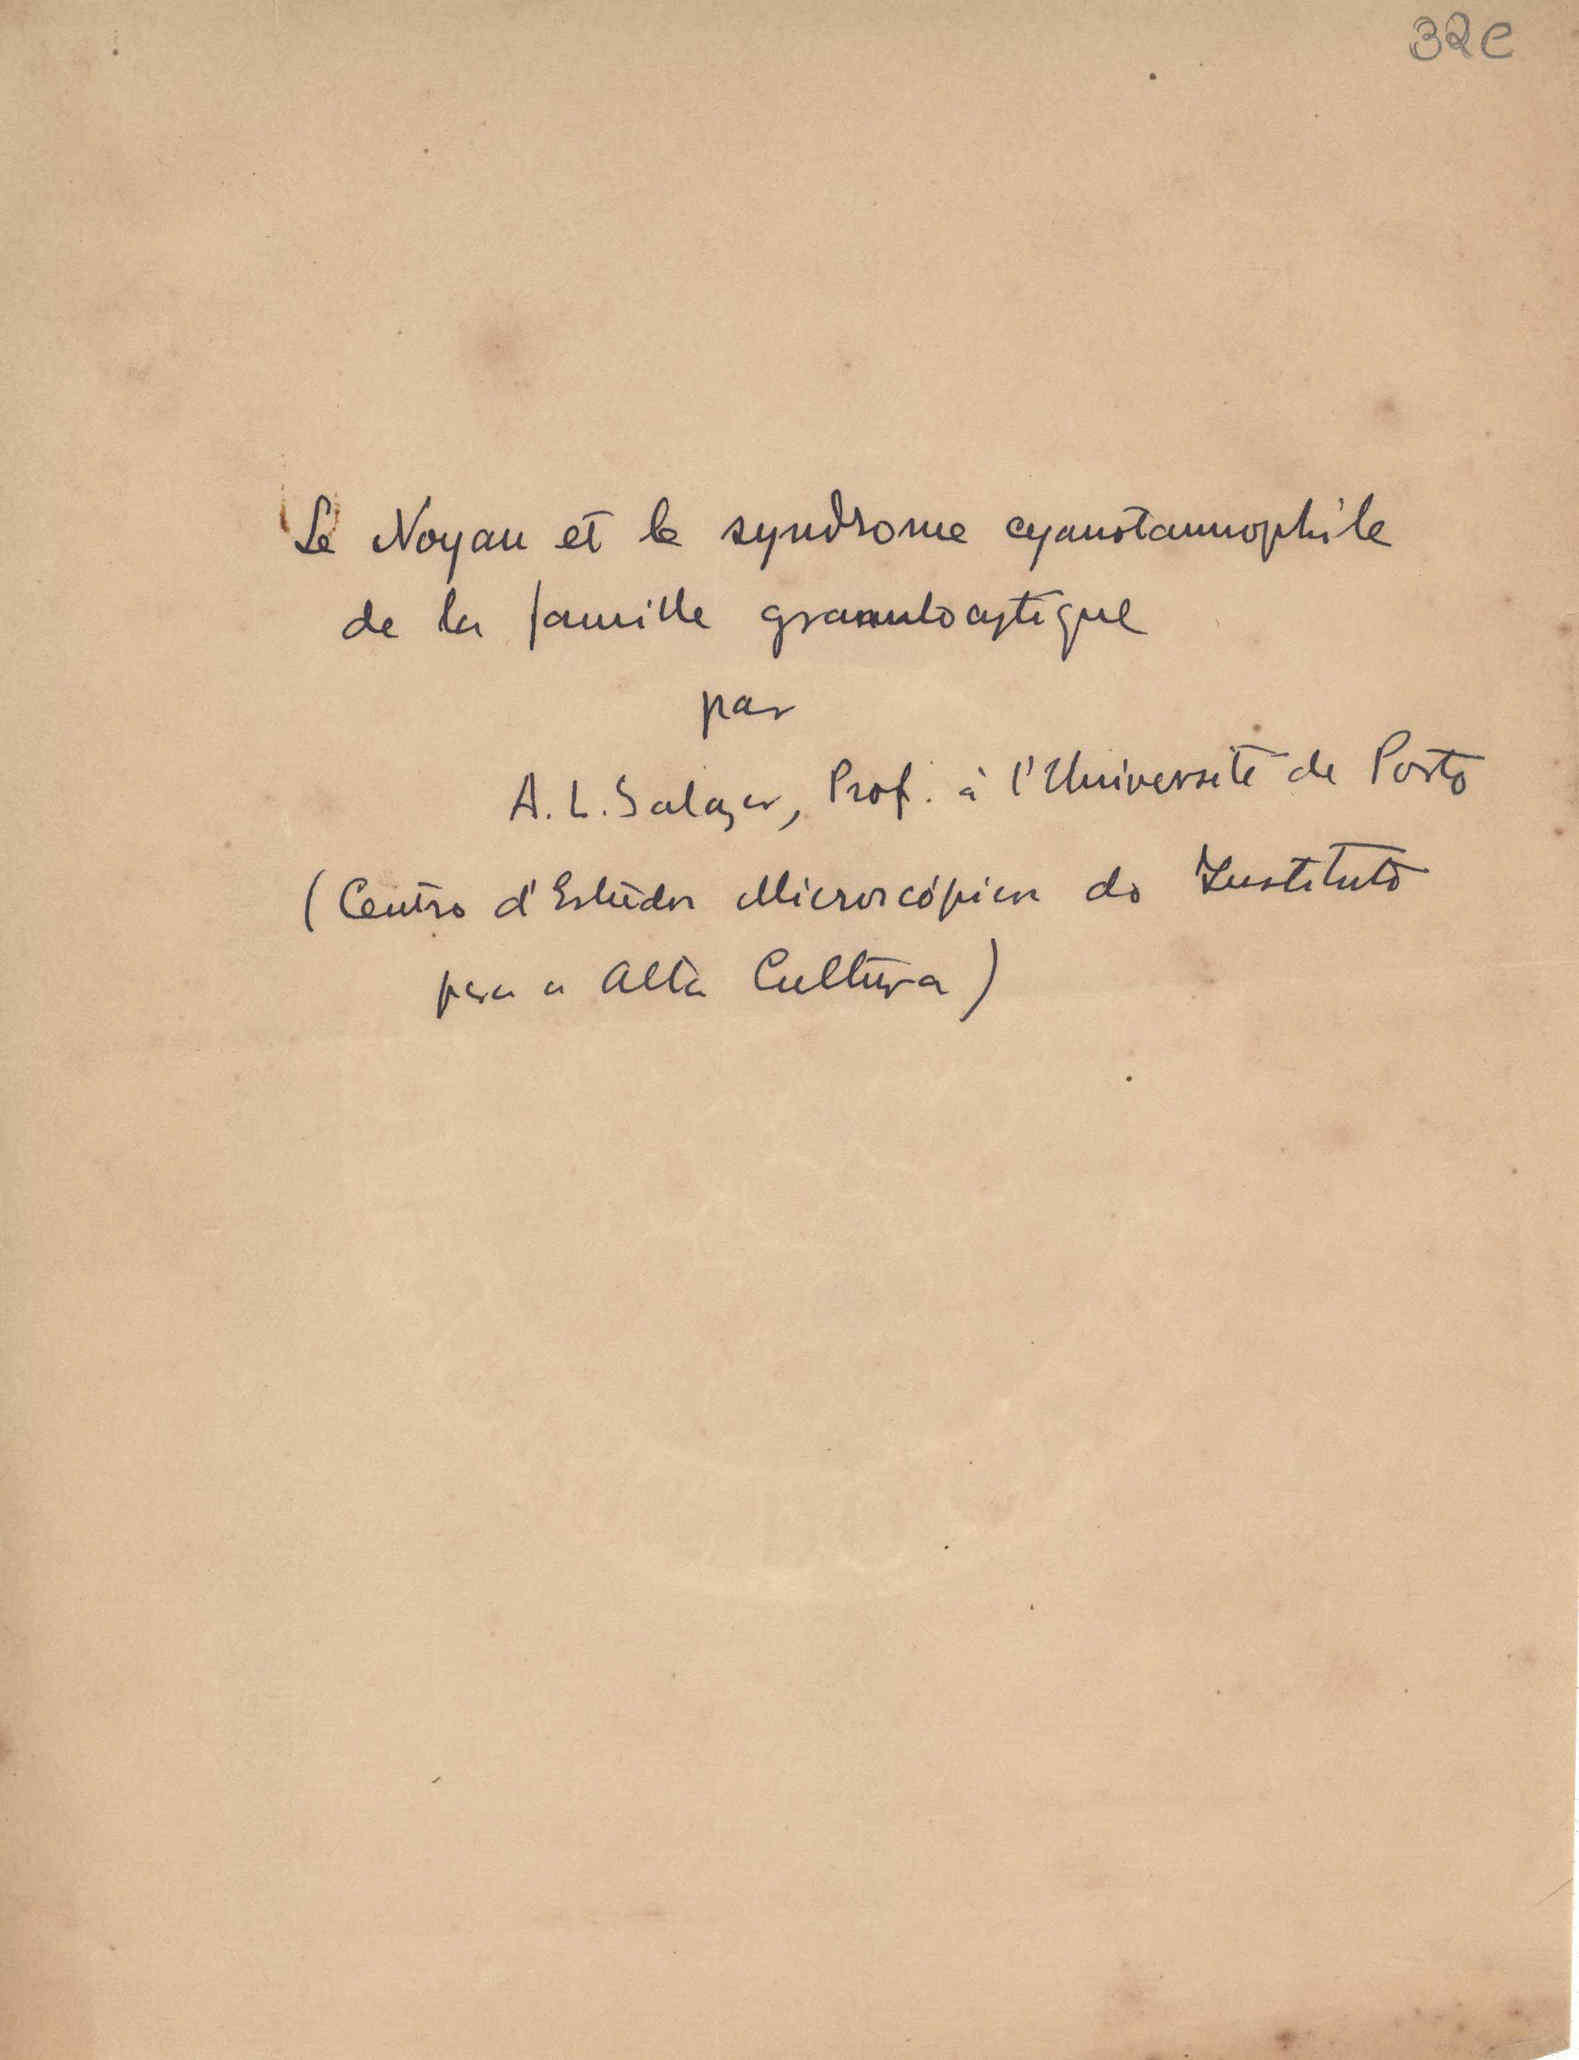 32C
Le Noyau et le syndrome cyanotannophile
de la famille granulocytique
par
A. L. Salazar, Prof. à l'Université de Porto
(Centro d'Estudos Microscópicos do Instituto
para a Alta Cultura)